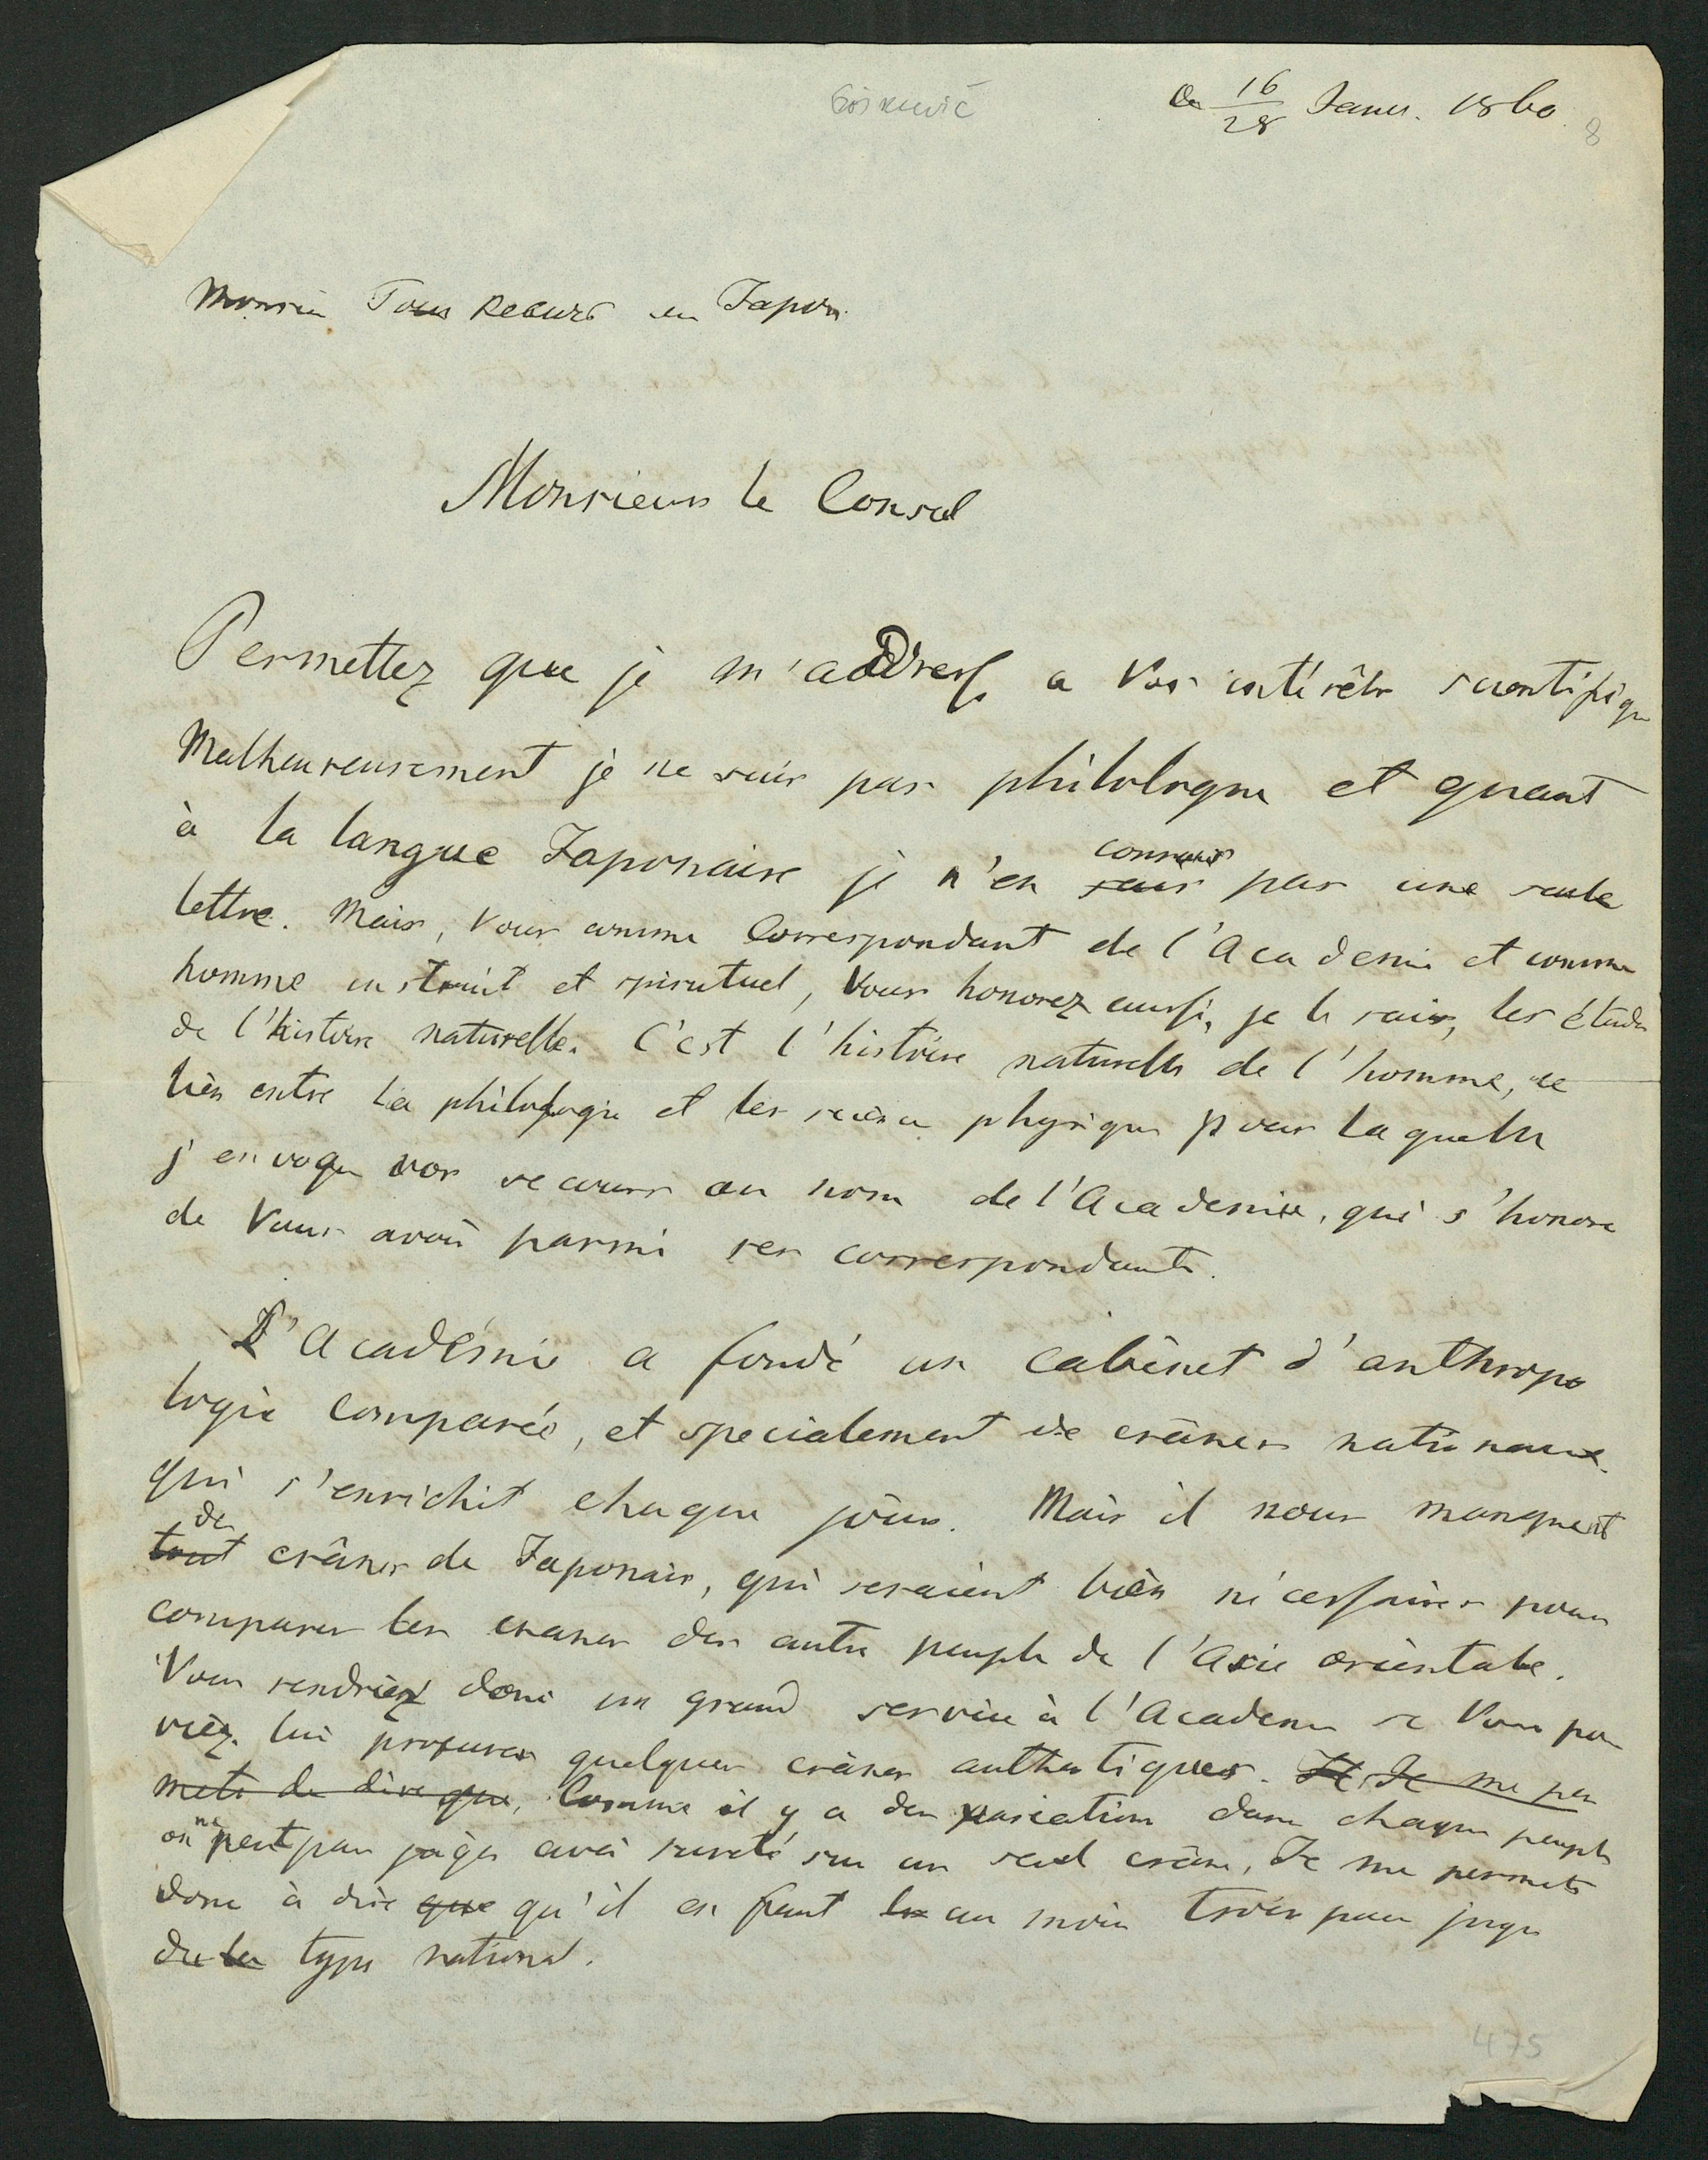 Goškevič
Ce 16/28 Janv. 1860.
8
Monsieur en Japon
Monsieur le Consul
Permettez que je m'addresse a Vos intérêts scientifiqu
Malheureusement je ne suis pas philologue et quant
à la langue Japonaise je n'en connais pas une seule
lettre. Mais, Vous comme Correspondant de l'Academie et comme
homme instruit et spirituel, Vous honorez aussi, je le sais, les études
de l'histoire naturelle. C'est l'histoire naturelle de l'homme, ce
lien entre la philologie et les science physique pour laquelle
j'envoque vos secours au nom de l'Academie, qui s'honore
de Vous avoir parmi ses correspondants.
L'Académie a fondé un cabinet d'anthropo
logie comparée, et specialement de crânes nationaux.
qui s'enrichit chaque jour. Mais il nous manquent
des
tout crânes de Japonais, qui seraient bien nécessaires pour
comparer les cranes des autre peuple de l'Asie orientale.
Vous rendriez donc un grand service à l'Academie si Vous pou
viez lui procurer quelques crânes authentiques. Je me per
mets de dire que, Comme il y a des variation dans chaque peuple
on ne peut pas juger avec sureté sur un seul crâne, Je me permets
donc à dire que qu'il en faut au moin trois pour juger
du type national.
475